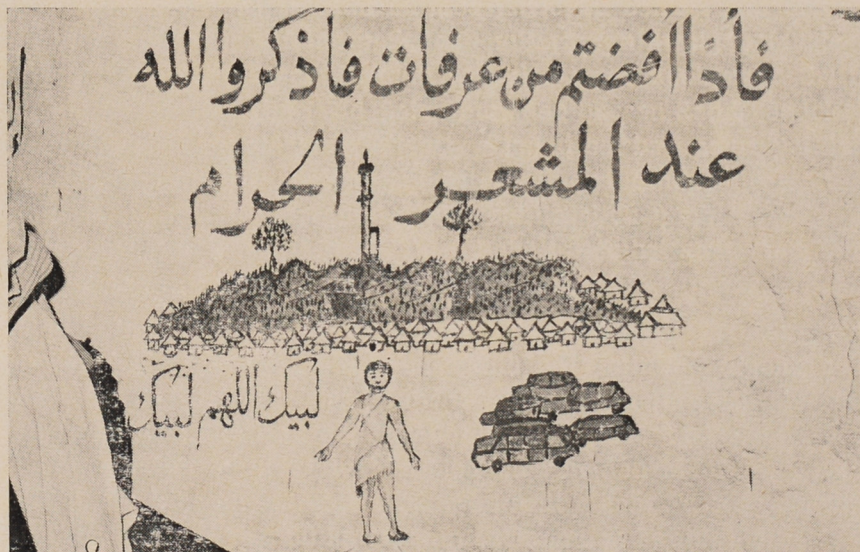 فأذا أفضتم من عرفات فاذكروا الله
عند المشعر الحرام
لبيك اللهم لبيك